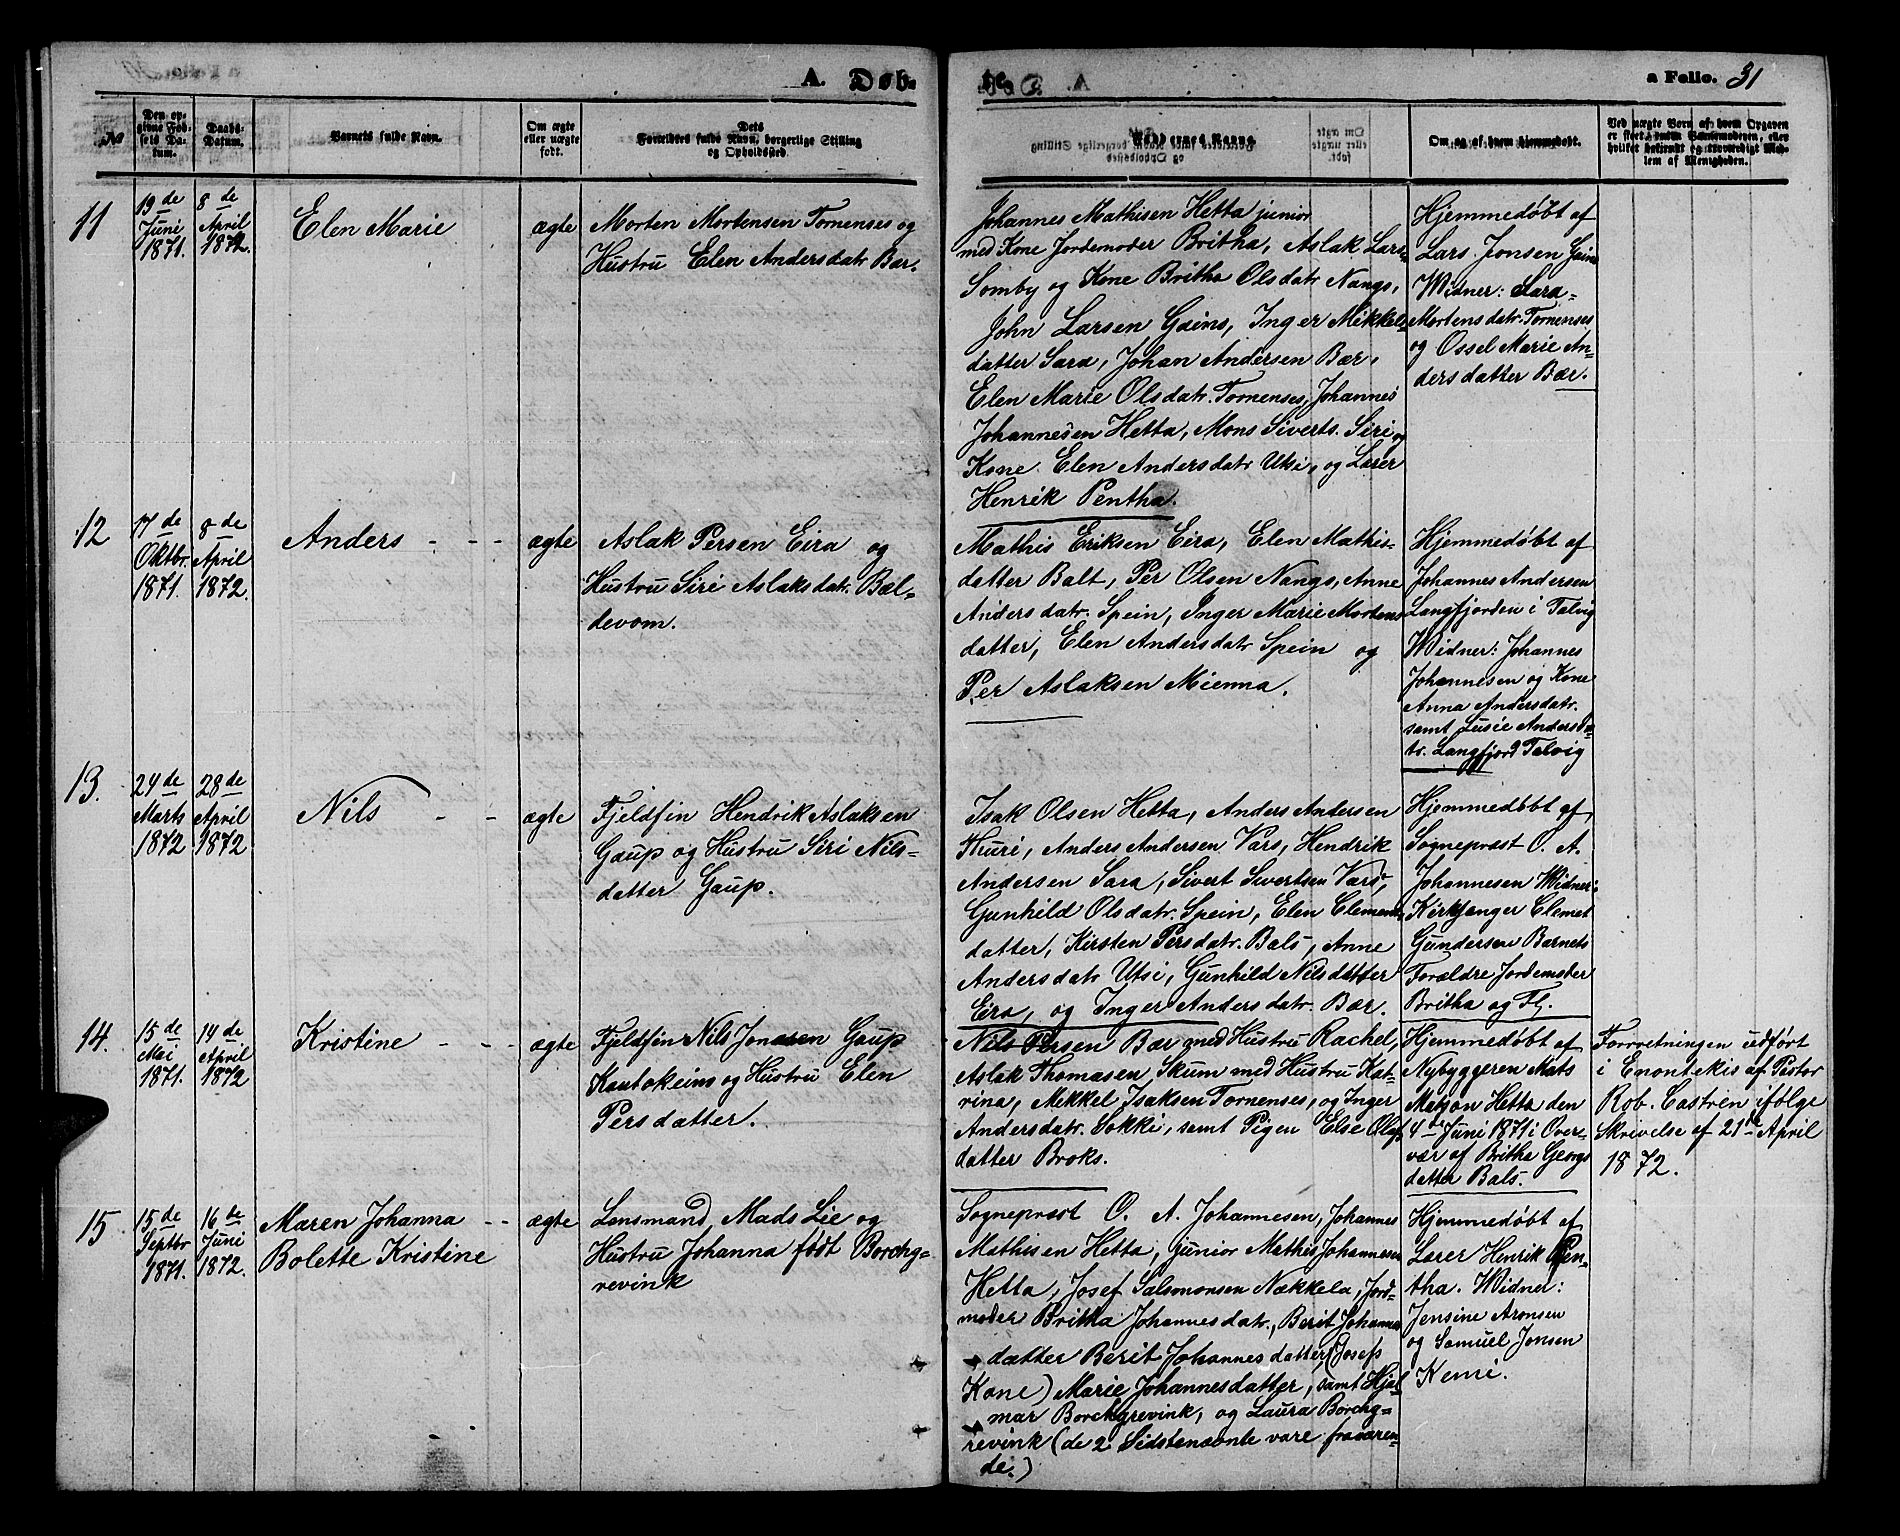 A. Døb-
te.
a Folio. 31
№
Den op-
givne Fød-
sels Da-
tum.
Daabs-
Datum.
Barnets fulde Navn.
Om ægte
eller uægte
født.
Dets
Forældres fulde Navn, borgerlige Stilling
og Opholdssted.
Faddernes Navne.
Om og af hvem hjemmedøbt.
Ved uægte Børn af hvem Opgaven
er skeet, enten Barnemoderen, eller
hvilket bekjendt og troværdigt Med-
lem af Menigheden.
11
19de
Juni
1871.
8de
April
1872.
Elen Marie
ægte
Morten Mortensen Tornenses og
Hustru Elen Andersdatr Bær.
Johannes Mathisen Hetta junior
med Kone Jordemoder Britha, Aslak Lars-
Somby og Kone Britha Olsdatr Nangs,
John Larsen Gaino, Inger Mikkels-
datter Sara, Johan Andersen Bær,
Elen Marie Olsdatr. Tornenses, Johannes
Johannesen Hetta, Mons Siverts. Siri og
Kone Elen Andersdatr Utsi, og Lærer
Henrik Pentha.
Hjemmedøbt af
Lars Jonsen Gaino
Widner: Sara
Mortensdatr. Tornenses,
og Ossel Marie An-
dersdatter Bær.
12
17de
Oktbr.
1871.
8de
April
1872.
Anders - - -
ægte
Aslak Persen Eira og
Hustru Siri Aslaksdatr. Bæl-
devom.
Mathis Eriksen Eira, Elen Mathis-
datter Balt, Per Olsen Nangs, Anne
Andersdatr. Spein, Inger Marie Mortens
datter, Elen Andersdatr Spein og
Per Aslaksen Mienna.
Hjemmedøbt af
Johannes Andersen
Langfjorden i Talvig
Widner: Johannes
Johannesen og Kone
Anna Andersdatr.
samt Lusie Andersda-
tr. Langfjord Talvig
13.
24de
Marts
1872
28de
April
1872
Nils - -
ægte
Fjeldfin Hendrik Aslaksen
Gaup og Hustru Siri Nils-
datter Gaup.
Isak Olsen Hetta, Anders Andersen
Thuri, Anders Andersen Vars, Hendrik
Andersen Sara, Sivert Sivertsen Vars,
Gunhild Olsdatr. Spein, Elen Clemens-
datter, Kirsten Persdatr. Bals, Anne
Andersdatr Utsi, Gunhild Nilsdatter
Eira, og Inger Andersdatr. Bær.
Hjemmedøbt af
Sognepræst O. A.
Johannesen Widner:
Kirksanger Clemet
Gundersen Barnets
Forældre Jordemoder
Britha og Fl.
14.
15de
Mai
1871.
14de
April
1872
Kristine - - -
ægte
Fjeldfin Nils Jonasen Gaup
Kautokeino og Hustru Elen
Persdatter.
Nils Persen Bær med Hustru Rachel,
Aslak Thomasen Skum med Hustru Kat-
rina, Mekkel Isaksen Tornenses, og Inger
Andersdatr. Sokki, samt Pigen Else Olafs
datter Broks.
Hjemmedøbt af
Nybyggeren Mats
Matson Hetta den
4de Juni 1871 i Over-
vær af Britha Georgs
datter Bals.
Forretningen udført
i Enontekis af Pastor
Rob. Castren ifølge
Skrivelse af 21de April
1872.
15
15de
Septbr
1871.
16de
Juni
1872.
Maren Johanna - -
Bolette Kristine
ægte
Lensmand Mads Lie og
Hustru Johanna født Borchg-
revink
Sognepræst O. A. Johannesen, Johannes
Mathisen Hetta, junior Mathis Johannesen
Hetta, Josef Salomonsen Nækkela, Jord-
moder Britha Johannesdatr., Berit Johannes
datter Berit Johannesdatter, (Josefs
Kone) Marie Johannesdatter, samt Hjal-
mar Borchgrevink, og Laura Borchg-
revink (de 2 Sidstenævnte vare fraværen-
de.)
Hjemmedøbt af
Lærer Henrik Pen-
tha. Widner:
Jensine Aronsen
og Samuel Jonsen
Kemi.